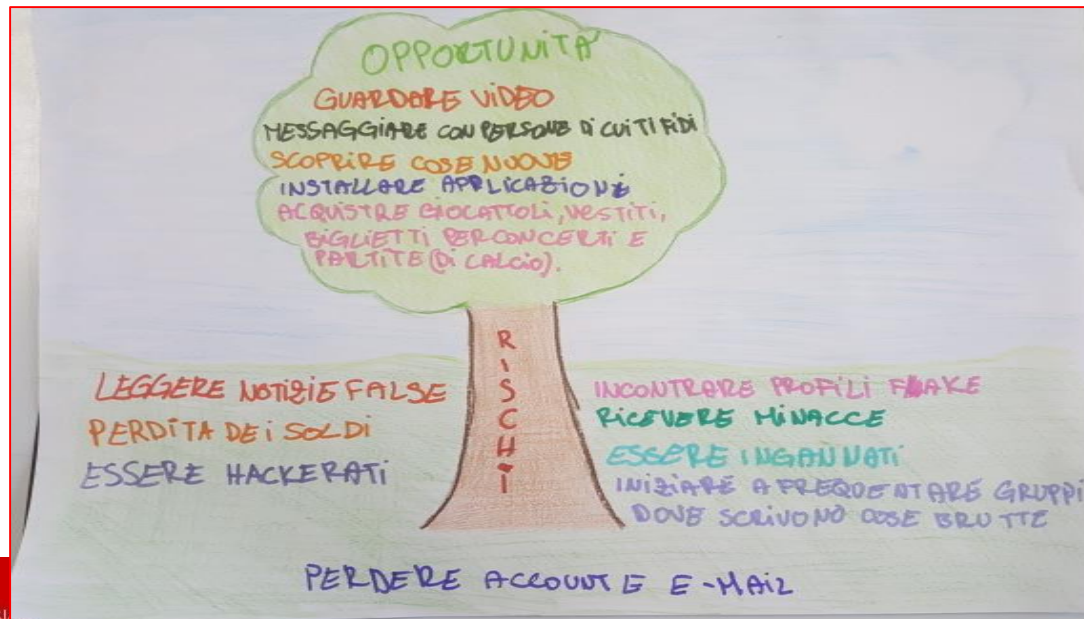 OPPORTUNITÀ
GUARDARE VIDEO
MESSAGGIARE CON PERSONE DI CUI TI FIDI
SCOPRIRE COSE NUOVE
INSTALLARE APPLICAZIONI
ACQUISTRE GIOCATTOLI, VESTITI,
BIGLIETTI PER CONCERTI E
PARTITE (DI CALCIO).
RISCHI
LEGGERE NOTIZIE FALSE
PERDITA DEI SOLDI
ESSERE HACKERATI
INCONTRARE PROFILI FAKE
RICEVERE MINACCE
ESSERE INGANNATI
INIZIARE A FREQUENTARE GRUPPI
DOVE SCRIVONO COSE BRUTTE
PERDERE ACCOUNT E E-MAIL